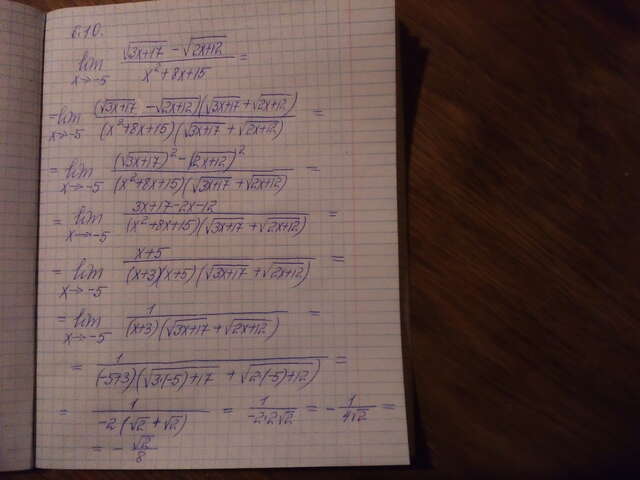 6.10.
lim x→-5 (√(3x+17) - √(2x+12)) / (x²+8x+15) =
= lim x→-5 ((√(3x+17) - √(2x+12))(√(3x+17) + √(2x+12))) / ((x²+8x+15)(√(3x+17) + √(2x+12))) =
= lim x→-5 ((√(3x+17))² - (√(2x+12))²) / ((x²+8x+15)(√(3x+17) + √(2x+12))) =
= lim x→-5 (3x+17-2x-12) / ((x²+8x+15)(√(3x+17) + √(2x+12))) =
= lim x→-5 (x+5) / ((x+3)(x+5)(√(3x+17) + √(2x+12))) =
= lim x→-5 1 / ((x+3)(√(3x+17) + √(2x+12))) =
= 1 / ((-5+3)(√(3·(-5)+17) + √(2·(-5)+12))) =
= 1 / (-2(√2 + √2)) = 1 / (-2·2√2) = - 1 / (4√2) =
= - √2 / 8